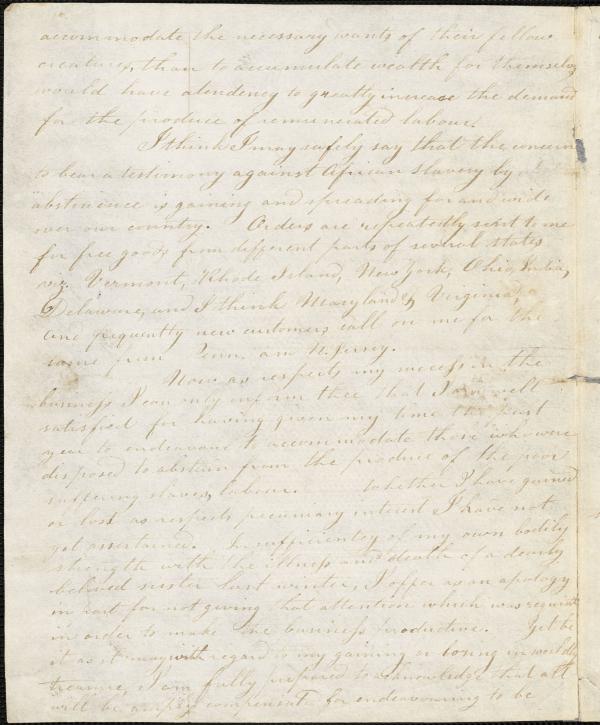 accommodate the necessary wants of their fellow
creatures, than to accumulate wealth for themselves
would have a tendency to greatly increase the demand
for the produce of remunerated labour.
I think I may safely say that the concern
to bear a testimony against African Slavery by
abstinence is gaining and spreading far and wide
over our country. Orders are repeatedly sent to me
for free goods from different parts of several states
viz. Vermont, Rhode Island, New York, Ohio, India,
Delaware, and I think Maryland & Virginia,
and frequently new customers call on me for the
same from Penn. and N. Jersey.
Now as respects my success in the
business I can only inform thee that I am well
satisfied for having given my time the past
year to endeavour to accommodate those who were
disposed to abstain from the produce of the poor
suffering slaves labour. Whether I have gained
or lost as respects pecuniary interest I have not
yet ascertained. In sufficiency of my own bodily
strength with the illness and death of a dearly
beloved sister last winter, I offer as an apology
in part for not giving that attention which was requisite
in order to make the business productive. Yet be
it as it may with regard to my gaining or losing in worldly
treasure, I am fully prepared to acknowledge that all
will be amply compensated for endeavouring to be